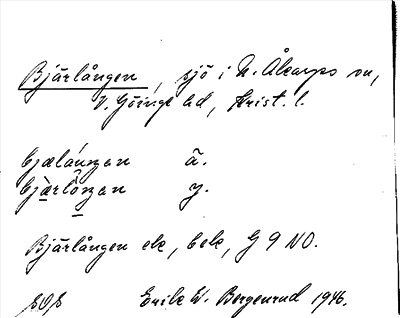 Bjärlången, sjö i N. Åkarps sn,
V. Göinge hd, Krist. l.
bjælåŋŋan ä.
bjærlôŋŋan y.
Bjärlången ek, bek, G 9 NO.
SOS Erik W. Bergenrud 1946.